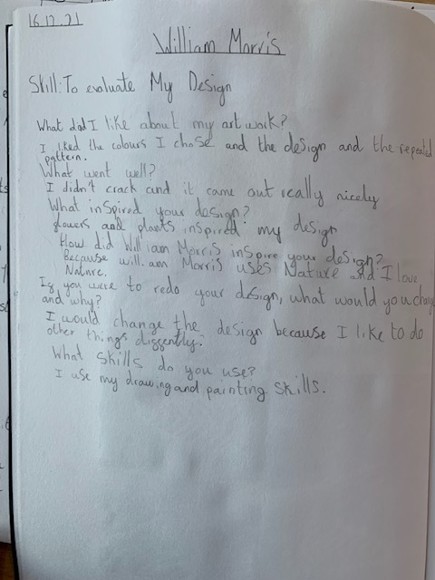 16.12.21
William Morris
Skill: To evaluate My Design
What did I like about my art work?
I liked the colours I chose and the design and the repeated
pattern.
What went well?
I didn't crack and it came out really nicely
What inspired your design?
flowers and plants inspired my design
How did William Morris inspire your design?
Because William Morris uses Nature and I love
Nature.
If you were to redo your design, what would you chang
and why?
I would change the design because I like to do
other things differently.
What skills do you use?
I use my drawing and painting skills.